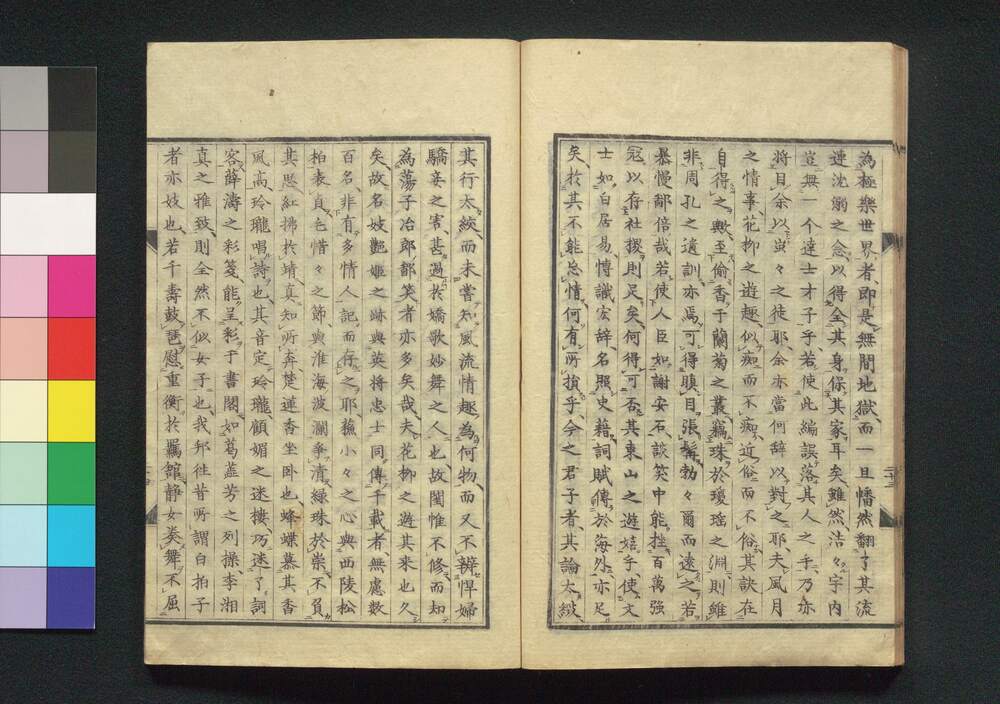 為極樂世界者、即是無間地獄、而一旦幡然翻了其流
連沈溺之念、以得全其身、保其家耳矣、雖然、浩々宇内
豈無一个達士才子乎、若使此編誤落其人之手、乃亦
將目余以蚩々之徒耶、余亦當何辞以對之耶、夫風月
之情事、花柳之遊趣、似痴而不痴、近俗而不俗、其訣在
自得之興、至偷香于蘭菊之叢、竊珠於瓊瑶之淵、則雖
非周孔之遺訓、亦焉可得瞋目張鬚、勃々爾而遠之、若
暴慢鄙倍哉、若使人臣如謝安石、談笑中能挫百萬強
冠、以存社稷、則足矣、何得可否其東山之遊嬉乎、使文
士如白居易、博識宏辞、名照史籍、詞賦傳於海外、亦足
矣、於其不能忘情、何有所損乎、今之君子者、其論太緻、
其行太紋、而未嘗知風流情趣、為何物、而又不辨悍婦
驕妾之害、甚過於嬌歌妙舞之人也、故閨惟不修、而却
為蕩子冶郎鄙笑者、亦多矣哉、夫花柳之遊其来也久
矣、故名妓艷姬之跡、與英将忠士同傳千載者、無慮数
百名、非有多情人記而存之、耶、蘓小々之心、與西陵松
柏表貞色、惜々之節、與淮海波瀾爭清、綠珠於崇、不負
其恩、紅拂於靖、真知所奔、楚蓮香坐卧也、蜂蝶慕其香
風、高玲瓏唱詩也、其音定玲瓏、顧媚之迷樓、巧迷了詞
客、薛濤之彩箋、能呈彩于書閣、如葛蕋芳之列操、李湘
真之雅致、則全然不似女子也、我邦往昔所謂白拍子
者亦妓也、若千壽鼓琵、慰重衡於羈館、静女奏舞、不屈